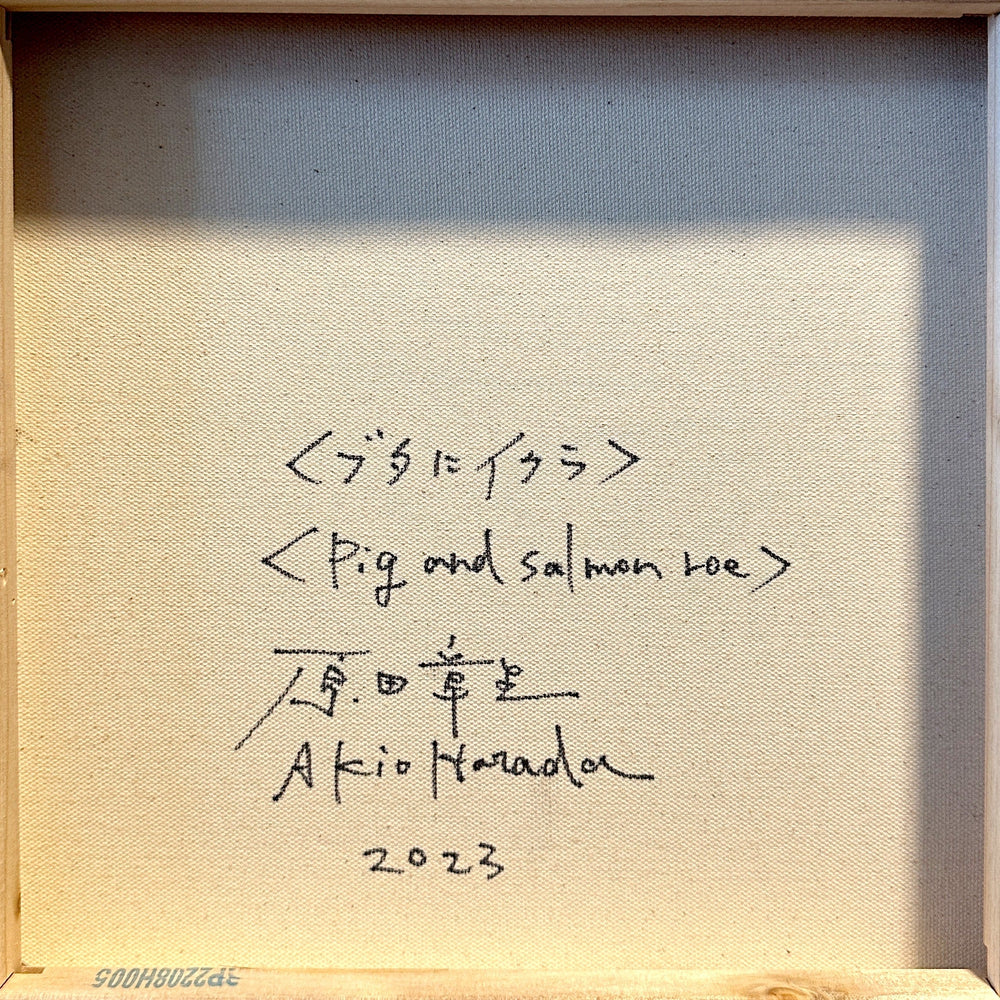 <ブタにイクラ>
<Pig and salmon roe>
原田章生
Akio Harada
2023
3P2208H005